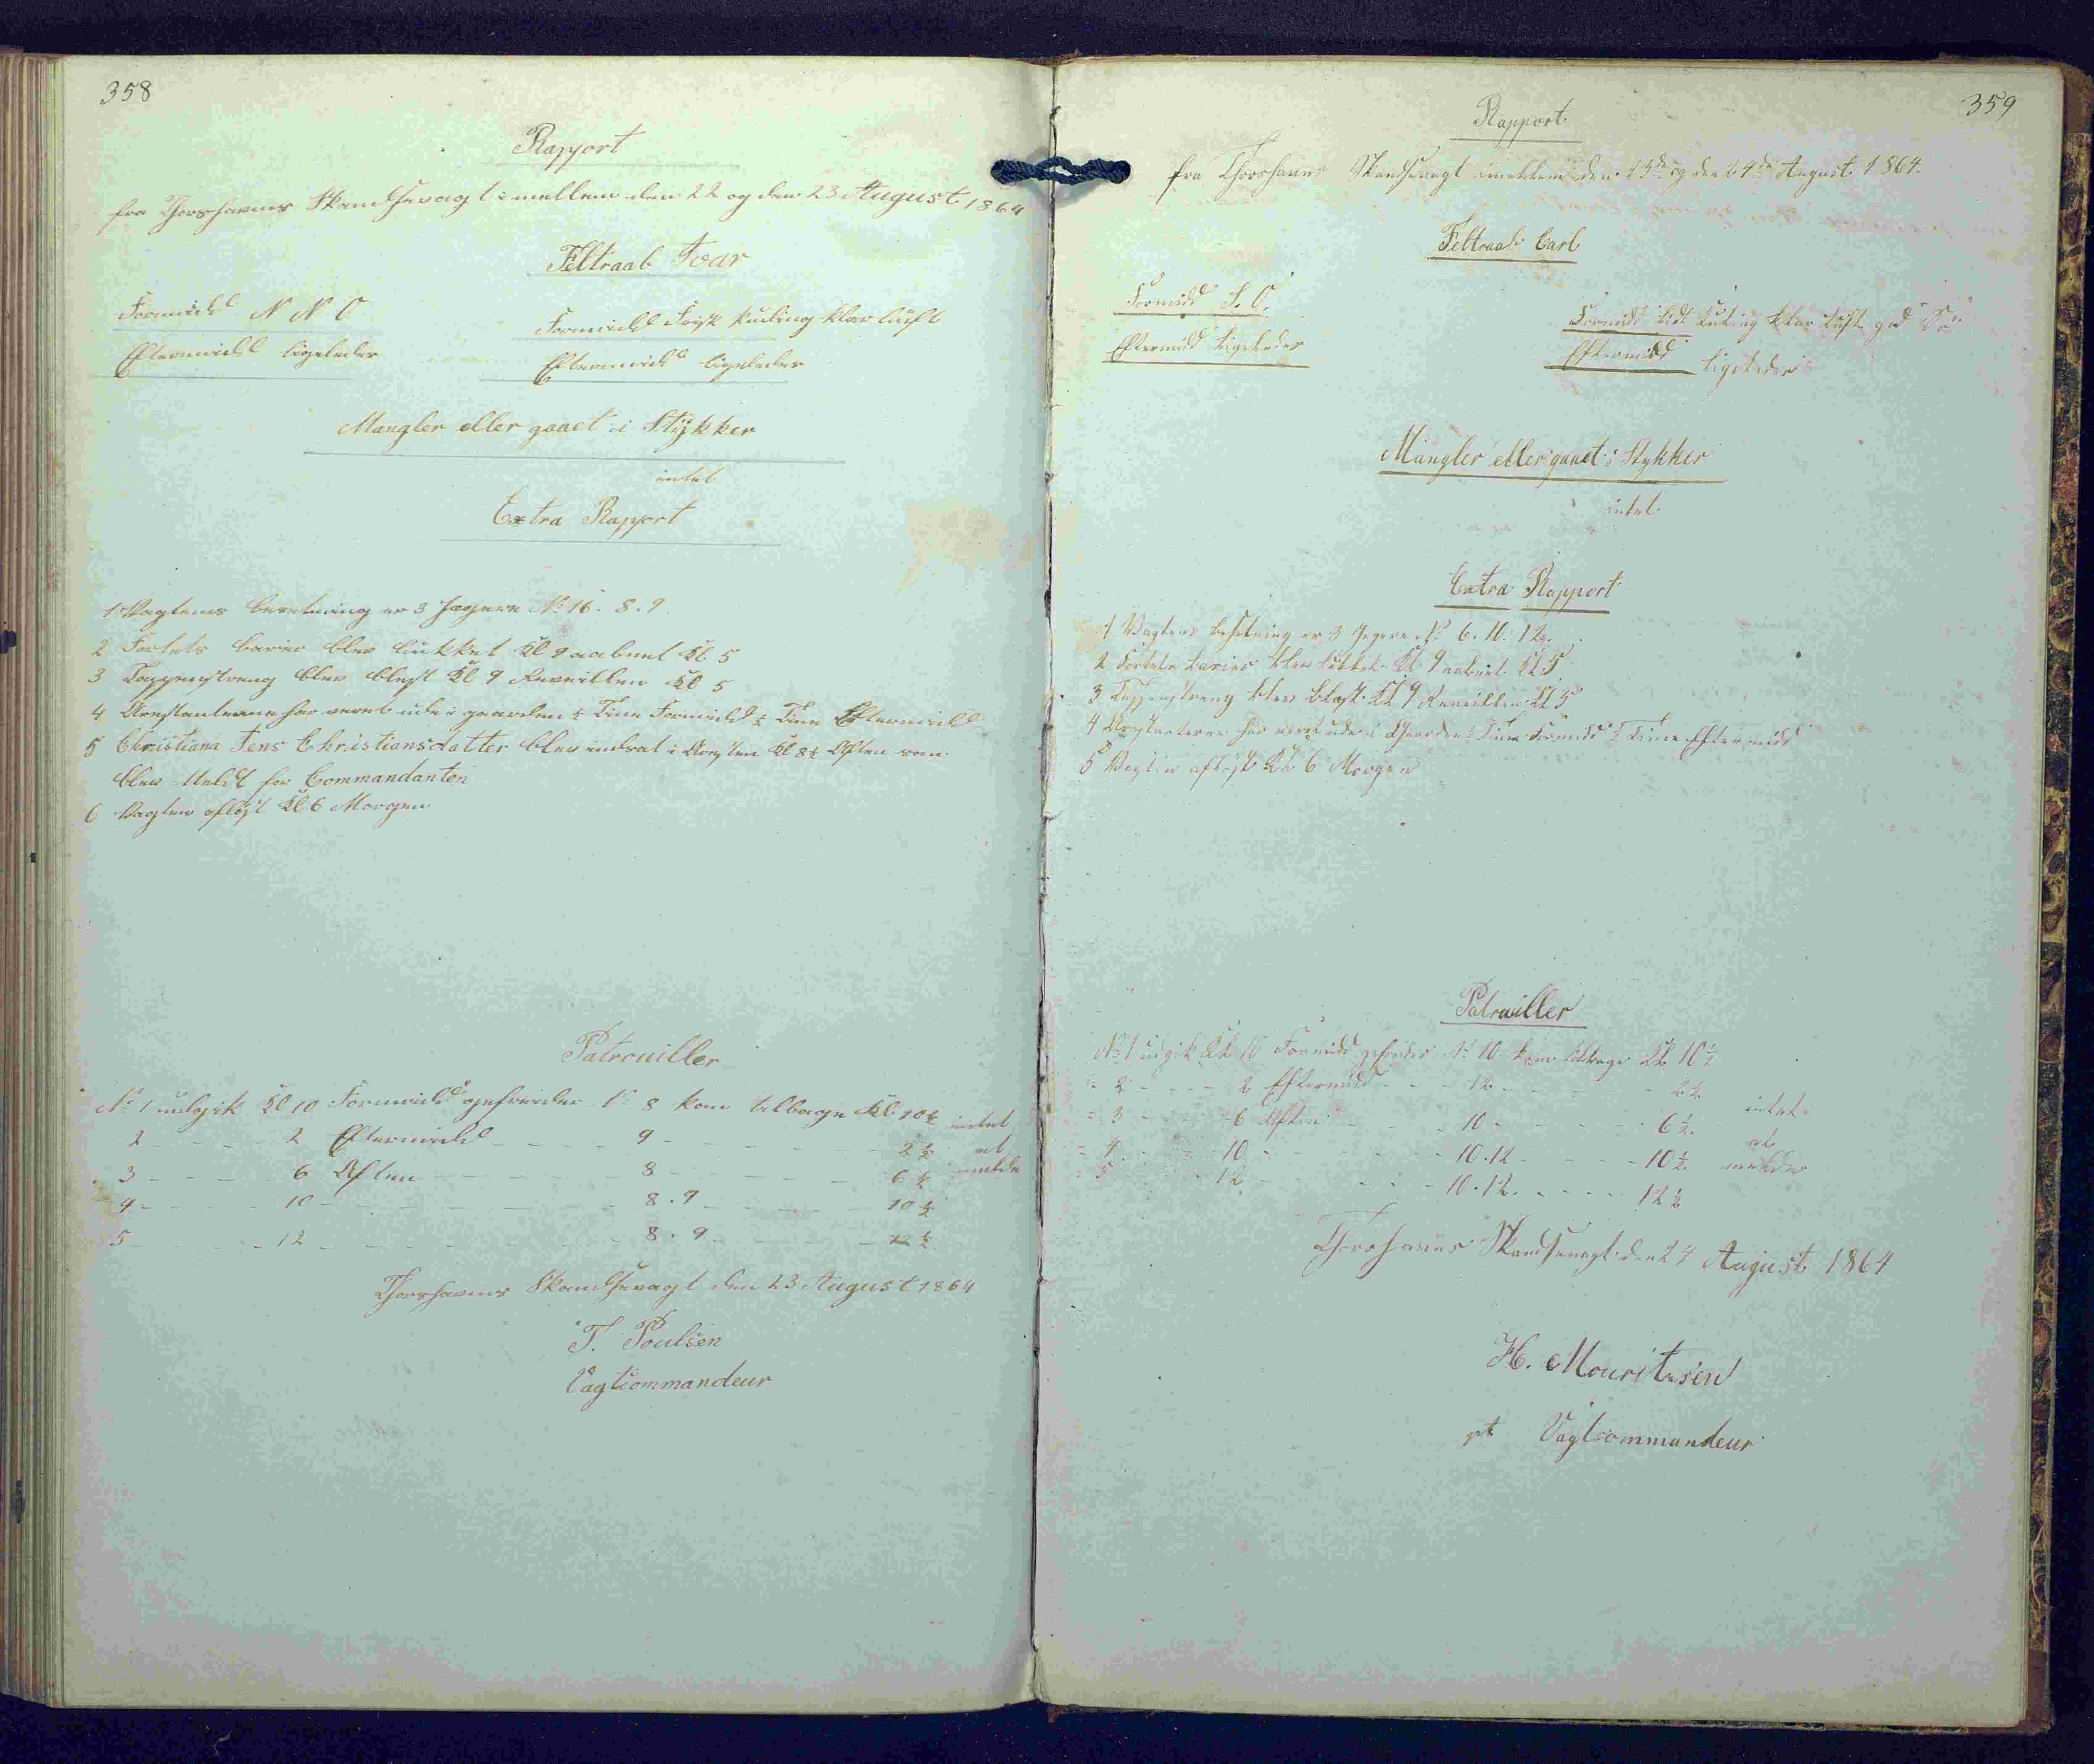 358
Rapport
fra Thorshavns Skandsevagt imellem den 22 og den 23 August 1864
Feltraab Ivar
Formidd N N O
Formidd Frisk Kuling klar luft
Eftermidd ligeledes
Eftermidd ligeledes
Mangler eller gaaet i Stykker
intet
Extra Rapport
1 Vagtens besetning er 3 Jægere No 16. 8. 9.
2 Fortets barier blev lukket Kl 9 aabnet Kl 5
3 Tappenstreng blev blest Kl 9 Reveillen Kl 5
4 Arestanterne har veret ude i gaarden ½ Time Formidd ½ Time Eftermidd
5 Christiana Jens Christiansdatter blev indsat i Aresten Kl 8½ Aften som
blev Meldt for Commandanten
6 Vagten afløst Kl 6 Morgen
Patrouiller
No 1 udgik Kl 10 Formidd gefreider No 8 kom tilbage Kl 10½ intet
2 - - - - 2 Eftermidd - - - - 9 - - - - 2½ at
3 - - - - 6 Aften - - - - 8 - - - - 6½ melde
4 - - - - 10 - - - - 8. 9 - - - - 10½
5 - - - - 12 - - - - 8. 9 - - - - 12½
Thorshavns Skandsevagt den 23 August 1864
T. Poulsen
Vagtcommandeur
359
Rapport
fra Thorshavns Skandsevagt imellem den 23de og den 24de August 1864.
Feltraab Carl
Formidd S. O.
Formidd lidt Kuling klar luft god Sø
Eftermidd ligeledes
Eftermidd ligeledes
Mangler eller gaaet i Stykker
intet
Extra Rapport
1 Vagtens besetning er 3 Jegere No 6. 10. 12.
2 Fortets barier blev lukket Kl 9 aabnet Kl 5
3 Tappenstreng blev blæst Kl 9 Reveillen Kl 5
4 Arestanterne har veret ude i Gaarden ½ Time Formidd ½ Time Eftermidd
5 Vagten afløst Kl 6 Morgen
Patrouiller
No 1 udgik Kl 10 Formidd gefreider No 10 kom tilbage Kl 10½
= 2 - - - - 2 Eftermidd - - - 12 - - - - 2½ intet
= 3 - - - - 6 Aften - - - 10 - - - - 6½ at
= 4 - - - 10 - - - - 10. 12 - - - - 10½ melde
= 5 - - - 12 - - - - 10. 12. - - - - 12½
Thorshavns Skandsevagt den 24 August 1864
H. Mouritzsen
pt Vagtcommandeur